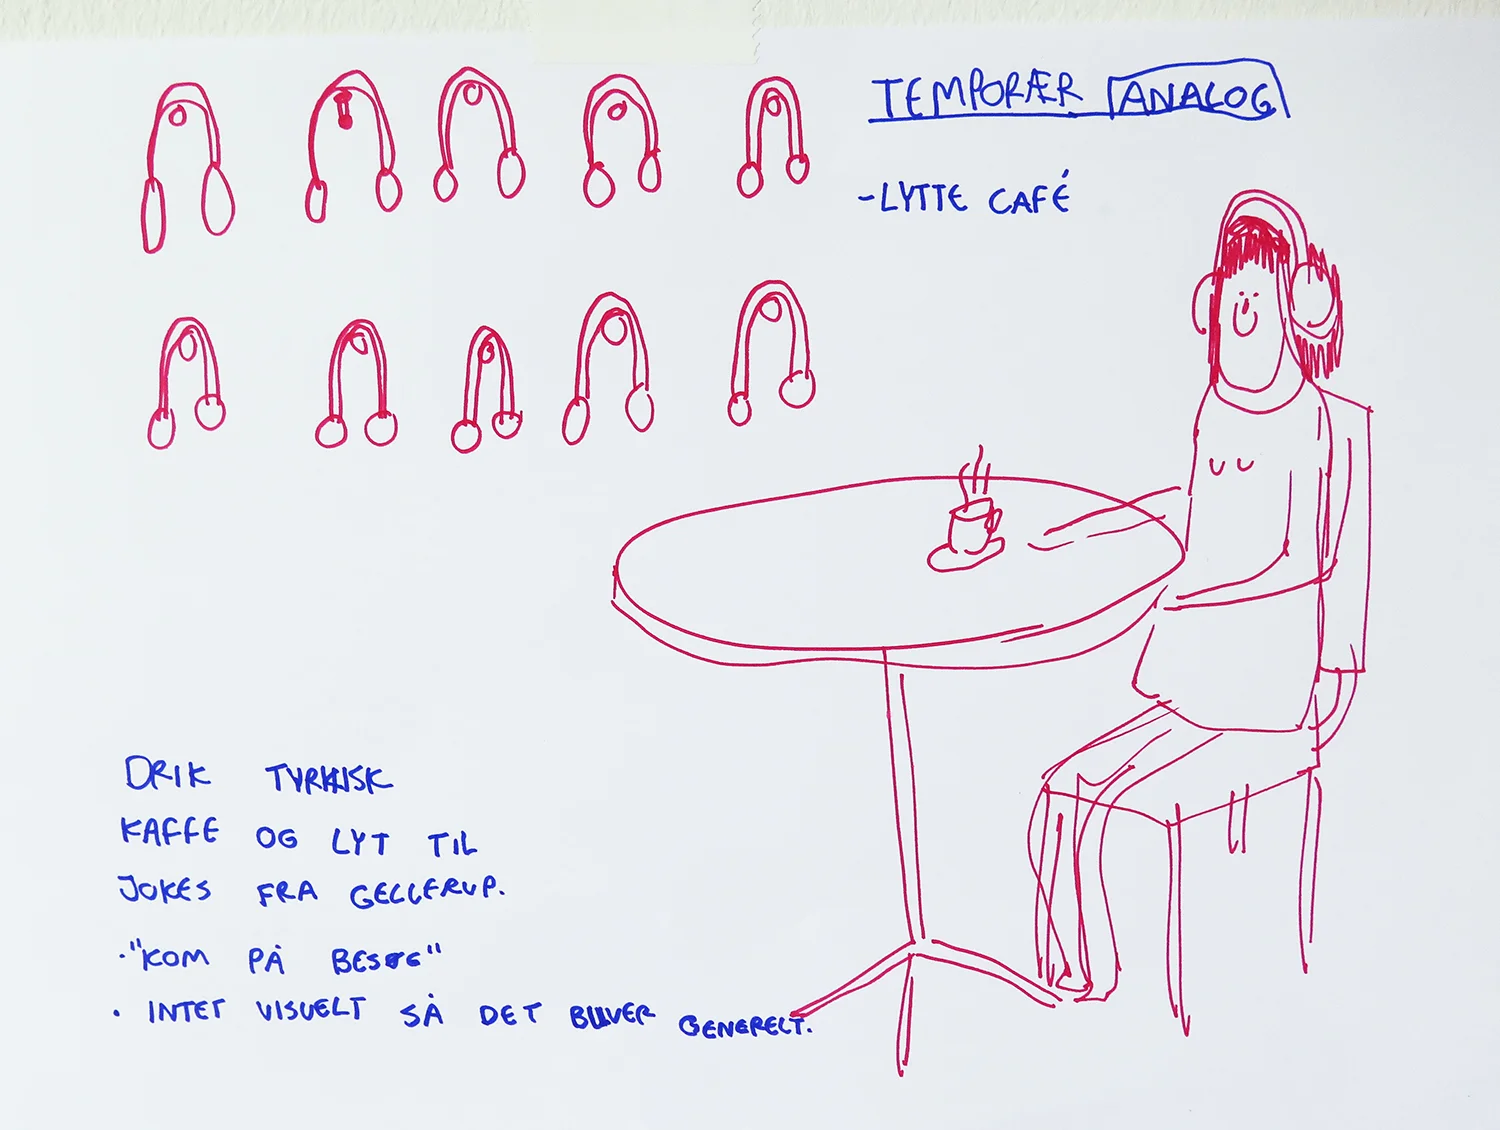 TEMPORÆR ANALOG
-LYTTE CAFÉ
DRIK TYRKISK
KAFFE OG LYT TIL
JOKES FRA GELLERUP.
·"KOM PÅ BESØG"
· INTET VISUELT SÅ DET BLIVER GENERELT.